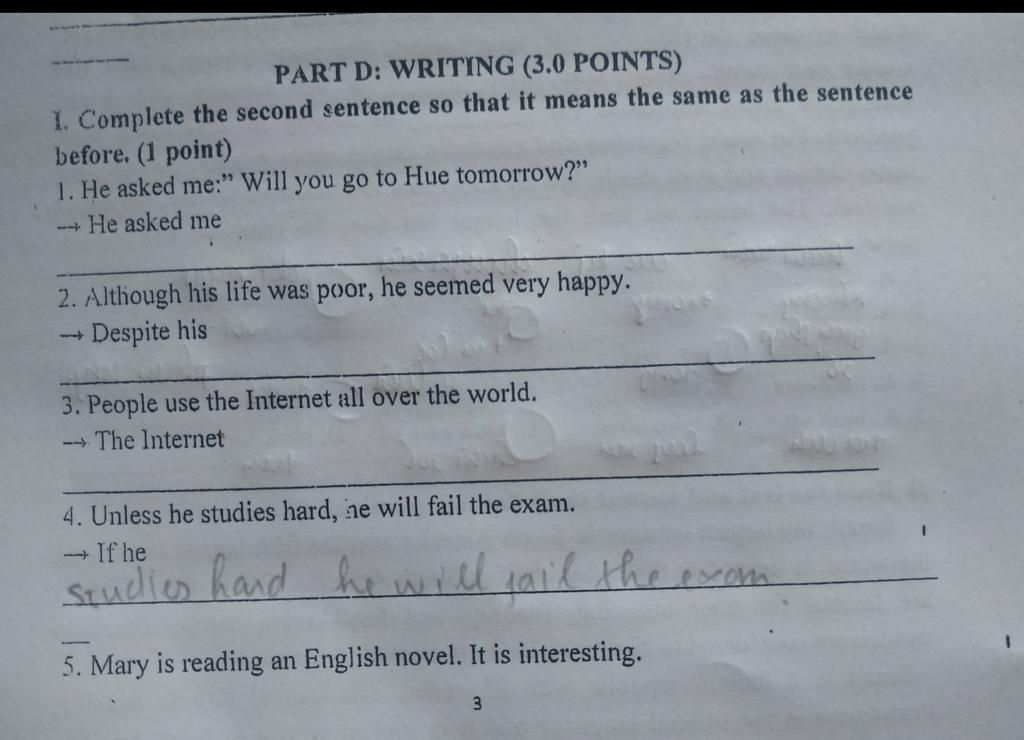 PART D: WRITING (3.0 POINTS)
I. Complete the second sentence so that it means the same as the sentence
before. (1 point)
1. He asked me:” Will you go to Hue tomorrow?”
→ He asked me
2. Although his life was poor, he seemed very happy.
→ Despite his
3. People use the Internet all over the world.
→ The Internet
4. Unless he studies hard, he will fail the exam.
→ If he
studies hard he will fail the exam
5. Mary is reading an English novel. It is interesting.
3